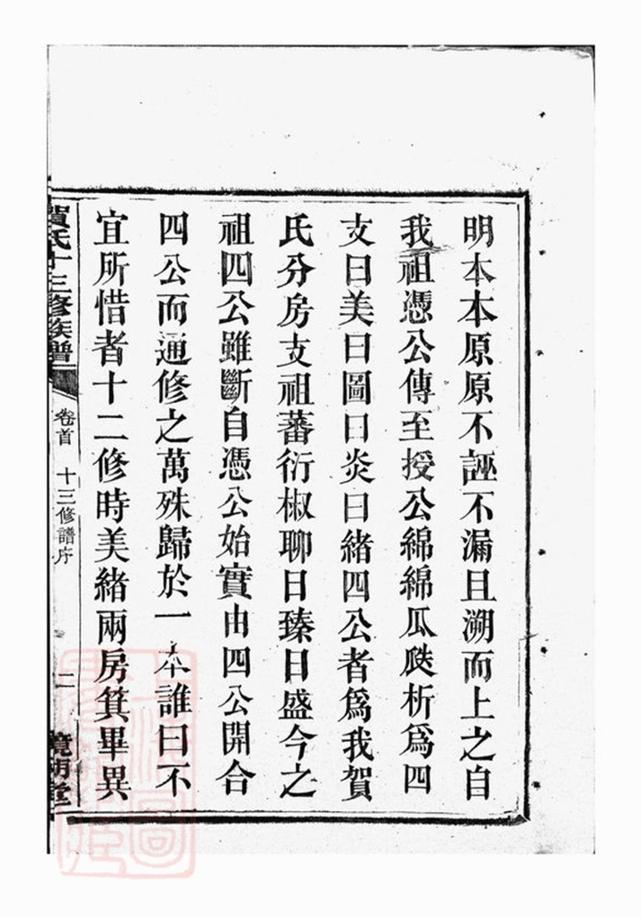 明本本原原不誣不漏且溯而上之自
我祖憑公傳至授公綿綿瓜瓞析爲四
支曰美曰圖曰炎曰緒四公者爲我賀
氏分房支祖蕃衍椒聊日臻日盛今之
祖四公雖斷自憑公始實由四公開合
四公而通修之萬殊歸於一本誰曰不
宜所惜者十二修時美緒兩房箕畢異
賀氏十三修族譜 卷首 十三修譜序 二